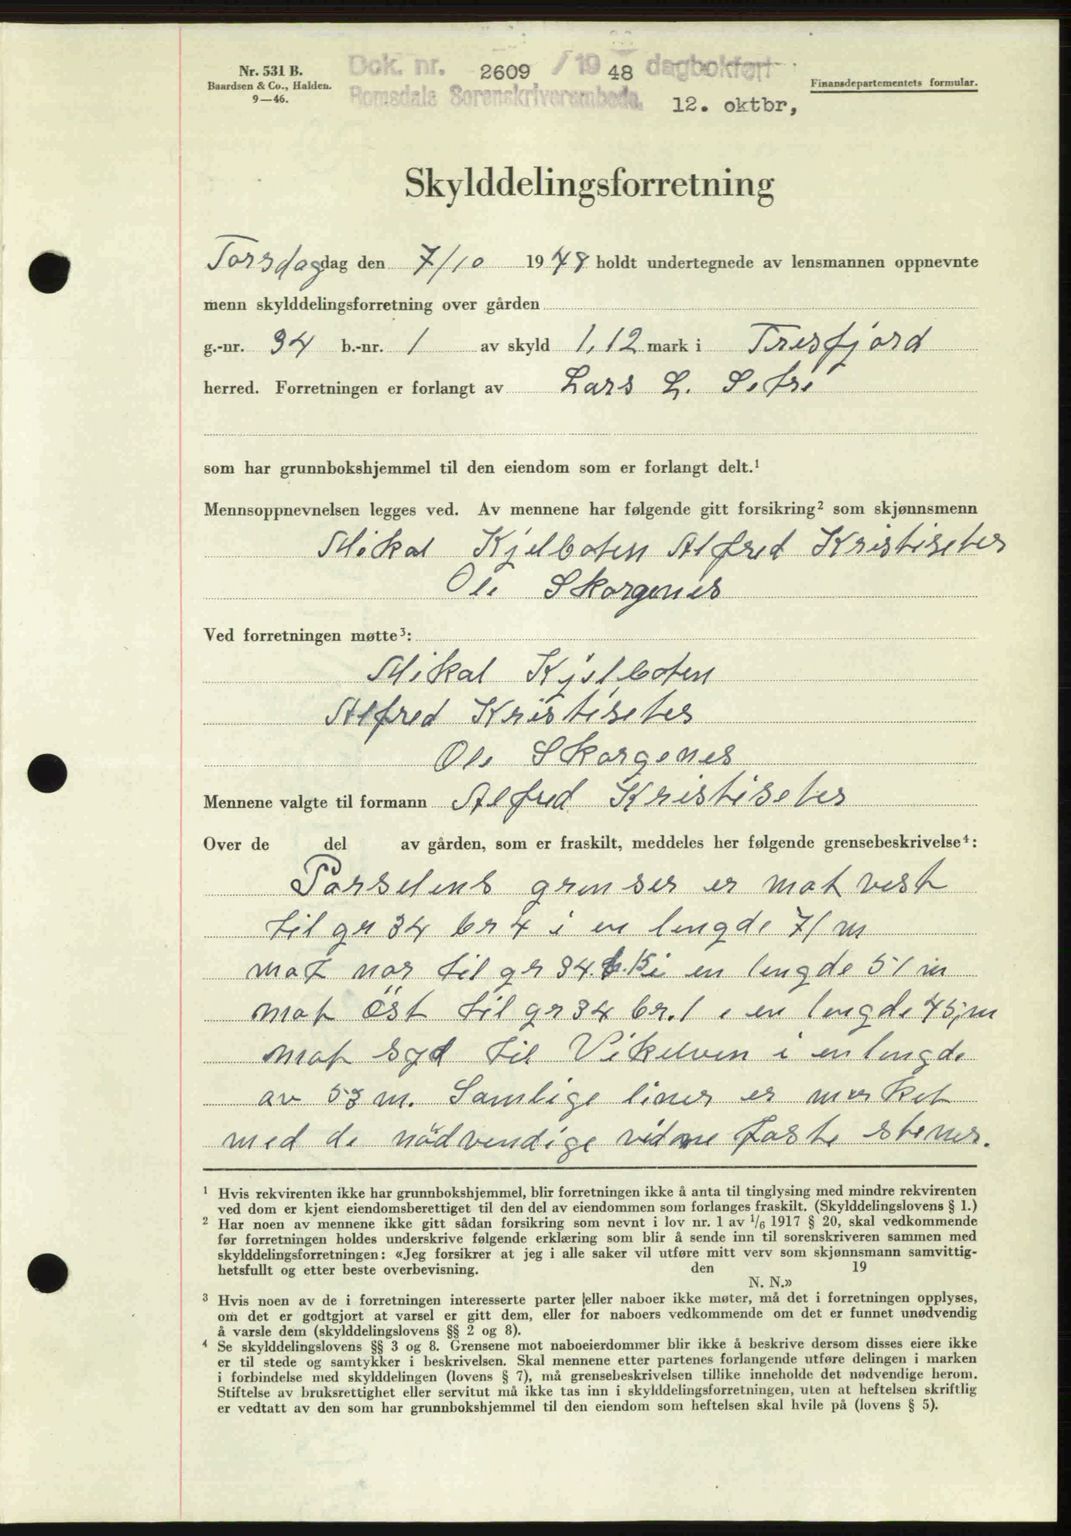 Nr. 531 B.
Baardsen & Co., Halden.
9—46.
Dok. nr. 2609 /19 48 dagbokført
Romsdals Sorenskriverembede. 12. oktbr,
Finansdepartementets formular.
Skylddelingsforretning
Torsdag dag den 7/10 1948 holdt undertegnede av lensmannen oppnevnte
menn skylddelingsforretning over gården
g.-nr. 34 b.-nr. 1 av skyld 1,12 mark i Tresfjord
herred. Forretningen er forlangt av Lars L.
som har grunnbokshjemmel til den eiendom som er forlangt delt.¹
Mennsoppnevnelsen legges ved. Av mennene har følgende gitt forsikring² som skjønnsmenn
Mikal Kjelboten Alfred Kristiseter
Ole Skorgenes
Ved forretningen møtte³:
Mikal Kjelboten
Alfred Kristiseter
Ole Skorgenes
Mennene valgte til formann Alfred Kristiseter
Over de del av gården, som er fraskilt, meddeles her følgende grensebeskrivelse⁴:
Parselens grenser er mot vest
til gr 34 br 4 i en lengde 71 m
mot nor til gr 34. b. 15 i en lengde 51 m
mot öst til gr 34 br. 1 i en lengde 45,m
mot syd til Vikelven i en lengde
av 53 m. Samlige liner er merket
med de nödvendige vidne faste stener.
¹ Hvis rekvirenten ikke har grunnbokshjemmel, blir forretningen ikke å anta til tinglysing med mindre rekvirenten
ved dom er kjent eiendomsberettiget til den del av eiendommen som forlanges fraskilt. (Skylddelingslovens § 1.)
² Har noen av mennene ikke gitt sådan forsikring som nevnt i lov nr. 1 av 1/6 1917 § 20, skal vedkommende
før forretningen holdes underskrive følgende erklæring som blir å sende inn til sorenskriveren sammen med
skylddelingsforretningen: «Jeg forsikrer at jeg i alle saker vil utføre mitt verv som skjønnsmann samvittig-
hetsfullt og etter beste overbevisning. den 19
N. N.»
³ Hvis noen av de i forretningen interesserte parter eller naboer ikke møter, må det i forretningen opplyses,
om det er godtgjort at varsel er gitt dem, eller for naboers vedkommende om det er funnet unødvendig
å varsle dem (skylddelingslovens §§ 2 og 8).
⁴ Se skylddelingslovens §§ 3 og 8. Grensene mot naboeierdommer blir ikke å beskrive dersom disses eiere ikke
er til stede og samtykker i beskrivelsen. Skal mennene etter partenes forlangende utføre delingen i marken
i forbindelse med skylddelingen (lovens § 7), må grensebeskrivelsen tillike inneholde det nødvendige herom.
Stiftelse av bruksrettighet eller servitut må ikke tas inn i skylddelingsforretningen, uten at heftelsen skriftlig
er vedtatt av den som har grunnbokshjemmel til den eiendom som heftelsen skal hvile på (lovens § 5).